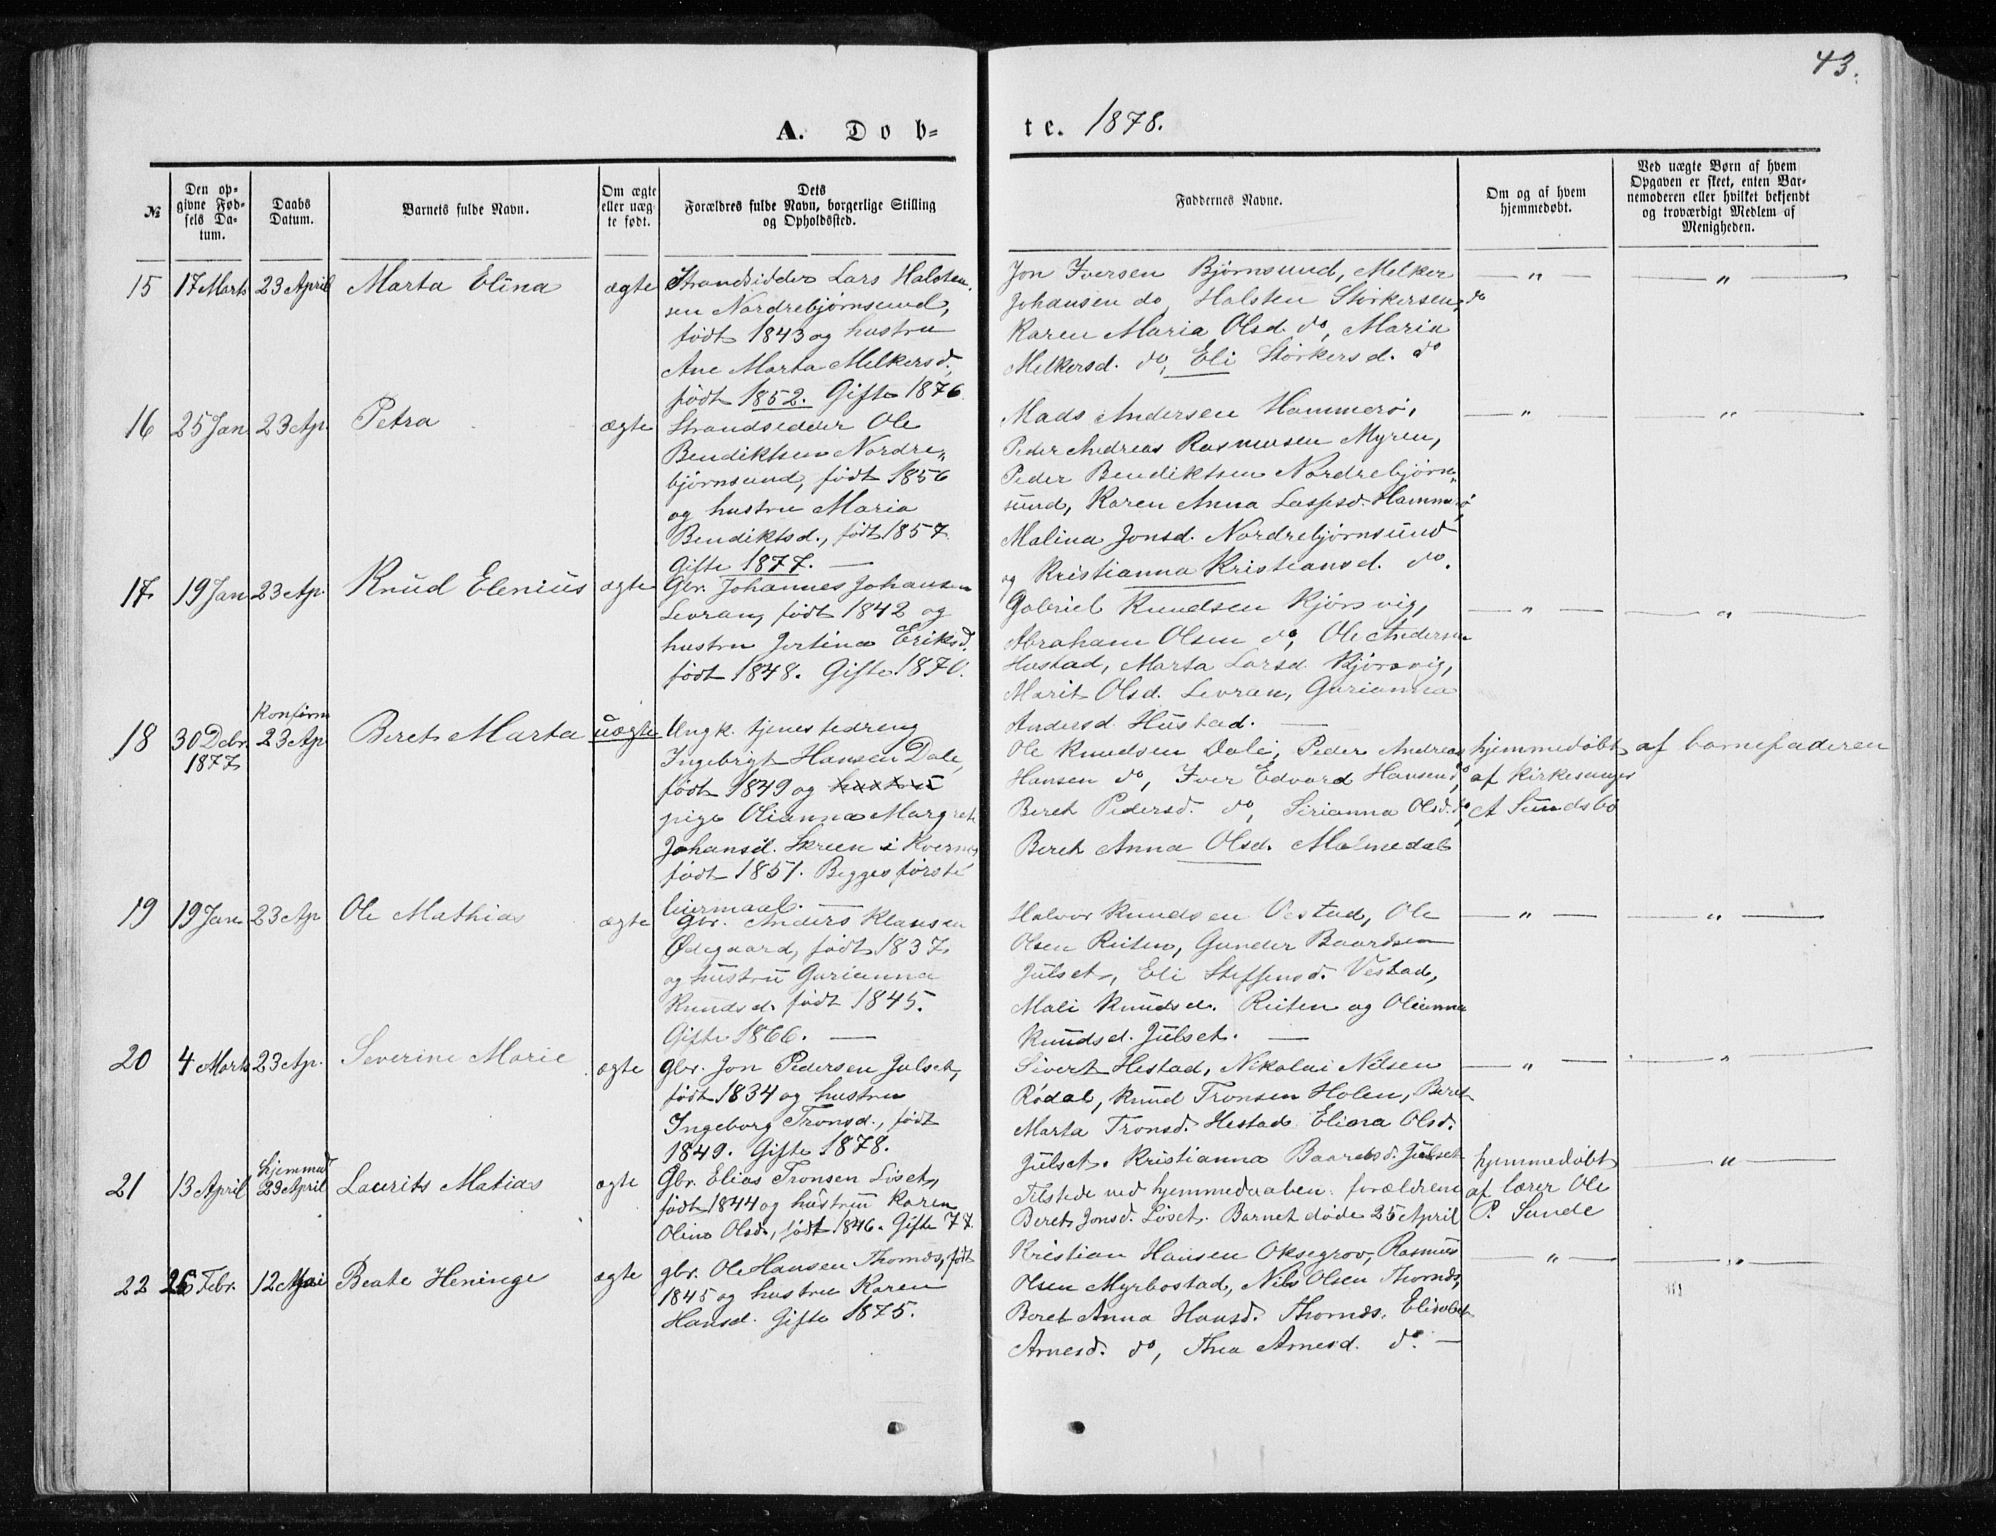 43.
A. Döb-
te. 1878.
№
Den op-
givne Fød-
sels Da-
tum.
Daabs
Datum.
Barnets fulde Navn.
Om ægte
eller uæg-
te født.
Dets
Forældres fulde Navn, borgerlige Stilling
og Opholdssted.
Faddernes Navne.
Om og af hvem
hjemmedøbt.
Ved uægte Børn af hvem
Opgaven er skeet, enten Bar-
nemoderen eller hvilket bekjendt
og troværdigt Medlem af
Menigheden.
15 17 Marts 23 April Marta Elina ægte
Strandsidder Lars Halsten-
sen Nordrebjørnsund,
født 1843 og hustru
Ane Marta Melkersd.,
født 1852. Gifte 1876
Jon Iversen Bjørnsund, Melker
Johansen do, Halsten Størkersen, do
Karen Maria Olsd. do, Marin
Melkersd. do, Eli Størkersd. do
— „ — — „ —
16 25 Jan 23 Ap. Petra ægte
Strandsidder Ole
Bendiktsen Nordre-
bjørnsund, født 1856
og hustru Maria
Bendiktsd., født 1857.
Gifte 1877. —
Mads Andersen Hammerø,
Peder Andreas Rasmusen Myren,
Peder Bendiktsen Nordrebjørn-
sund, Karen Anna Lassesd. Hammerø,
Malina Jonsd. Nordrebjørnsund
og Kristianna Kristiansd. do.
— „ — — „ —
17 19 Jan 23 Ap. Knud Elenius ægte
Gbr. Johannes Johansen
Levran, født 1842 og
hustru Jertina Eriksd.
født 1848. Gifte 1870.
Gabriel Knudsen Kjørsvig,
Abraham Olsen do, Ole Andersen
Hustad, Marta Larsd. Kjørsvig,
Marit Olsd. Levran, Gurianna
Andersd. Hustad. —
— „ — — „ —
18 30 Debr. 1877 Konfirm 23 Ap Beret Marta uægte
Ungk. tjenestedreng
Ingebrigt Hansen Dale,
født 1849 og hustru
pige Olianna Margrete
Johansd. Skreen i Kvernes
født 1851. Begges første
leiermaal. —
Ole Knudsen Dale, Peder Andreas
Hansen do, Iver Edvard Hansen do,
Beret Pedersd. do, Sirianna Olsd. do,
Beret Anna Olsd. Malmedal
hjemmedøbt
af kirkesanger
A Sundsbø
af barnefaderen
19 19 Jan 23 Ap Ole Mathias ægte
Gbr. Anders Klausen
Ødegaard, født 1837
og hustru Gurianna
Knudsd. født 1845.
Gifte 1866. —
Halvor Knudsen Vestad, Ole
Olsen Reiten, Gunder Baardsen
Julset, Eli Steffensd. Vestad,
Mali Knudsd. Reiten og Olianna
Knudsd. Julset. —
— „ — — „ —
20 4 Marts 23 Ap. Severine Marie ægte
gbr. Jon Pedersen Julset,
født 1834 og hustru
Ingeborg Tronsd., født
1849. Gifte 1878.
Sivert Hestad, Nikolai Nilsen
Rødal, Knud Tronsen Holen, Beret
Marta Tronsd. Hestad Elina Olsd.
Julset. Kristianna Baardsd. Julset
— „ — — „ —
21 13 April hjemmed 23 April Laurits Matias ægte
Gbr. Elias Tronsen Liset,
født 1844 og hustru Karen
Olina Olsd, født 1846. Gifte 77.
Tilstede ved hjemmedaaben: forældrene
Beret Jonsd. Løset. Barnet døde 25 April
hjemmedøbt
af lærer Ole
P. Sunde
— „ —
22 26 Febr. 12 Mai Beate Heninge ægte
gbr. Ole Hansen Thornæs, født
1845 og hustru Karen
Hansd. Gifte 1875.
Kristian Hansen Oksegrov, Rasmus
Olsen Myrbostad, Nils Olsen Thornæs,
Beret Anna Hansd. Thornæs. Elisabet
Arnesd. do, Thea Arnesd. do. —
— „ — — „ —